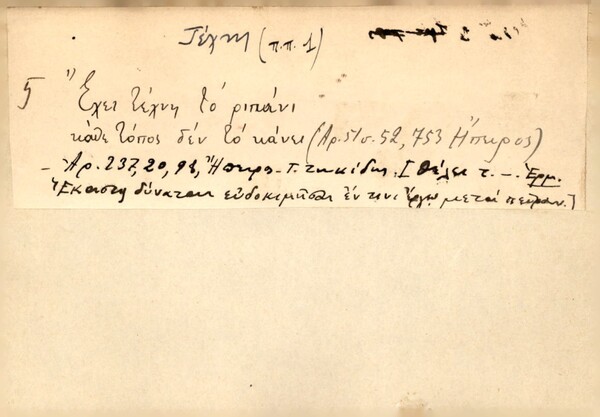 Τέχνη (π.π. 1)
5 Ἔχει τέχνη τό ριπάνι
κάθε τόπος δέν τό κάνει (Αρ. 51 σ. 52, 753 Ἤπειρος)
- Αρ. 237, 20, 98, Ἤπειρ. - Γ. Ζηκίδης. [Θέλει τ. -. Ἑρμ.
Ἕκαστος δύναται εὐδοκιμῆσαι ἔν τινι ἔργῳ μετά πεῖραν.]